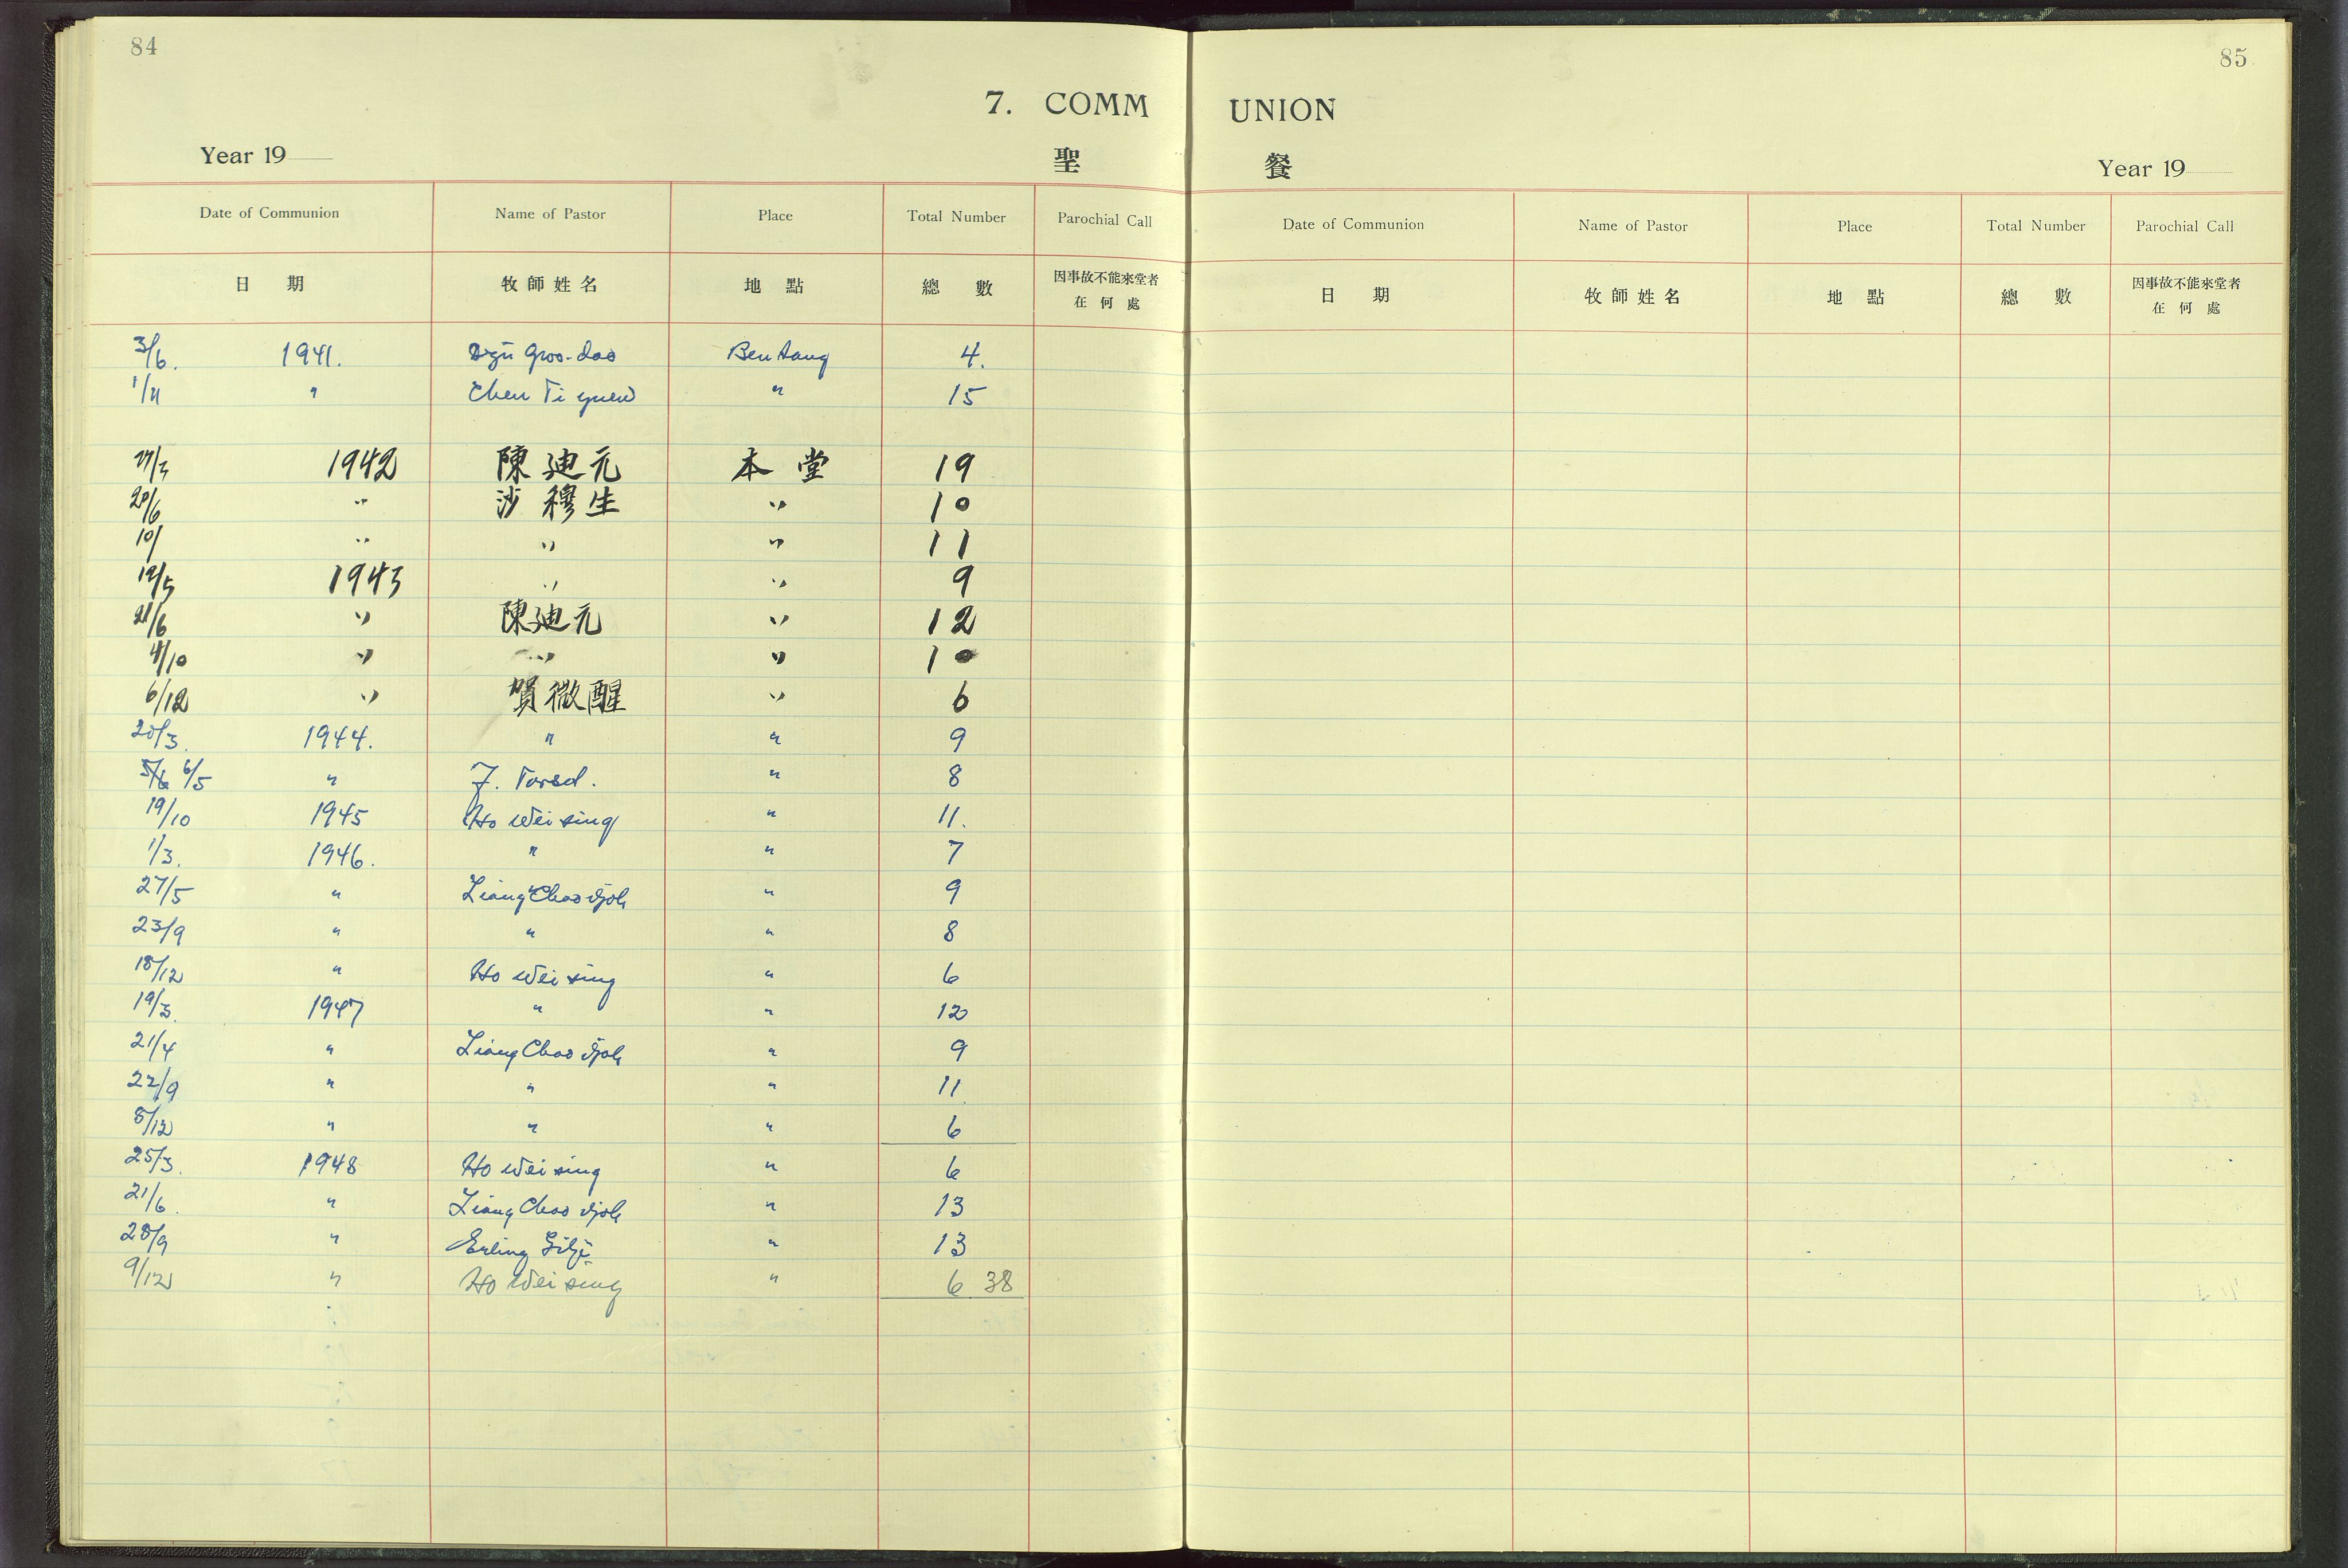 84
85
7. COMM UNION
Year 19
聖 餐
Year 19
Date of Communion Name of Pastor Place Total Number Parochial Call
Date of Communion Name of Pastor Place Total Number Parochial Call
日 期 牧師姓名 地 點 總 數 因事故不能來堂者
在 何 處
日 期 牧師姓名 地 點 總 數 因事故不能來堂者
在 何 處
3/6. 1941. Bentang 4.
1/11 " Chen Ti yuen " 15
1942 陳廸元 本堂 19
20/6 " 沙穆生 " 10
10/ " " " 11
19/5 1943 " " 9
21/6 " 陳廸元 " 12
4/10 " " " 10
6/12 " 賀微醒 " 6
20/3. 1944. " " 9
5/6 6/5 " J. Torsd. " 8
19/10 1945 Ho Wei sing " 11.
1/3. 1946. " " 7
27/5 " Liang Chao djoh " 9
23/9 " " " 8
18/12 " Ho Wei sing " 6
19/3. 1947 " " 12
21/4 " Liang Chao djoh " 9
22/9 " " " 11
8/12 " " " 6
25/3. 1948 Ho Wei sing " 6
21/6. " Liang Chao djoh " 13
28/9 " Erling Gilje " 13
9/12 " Ho Wei sing " 6 38